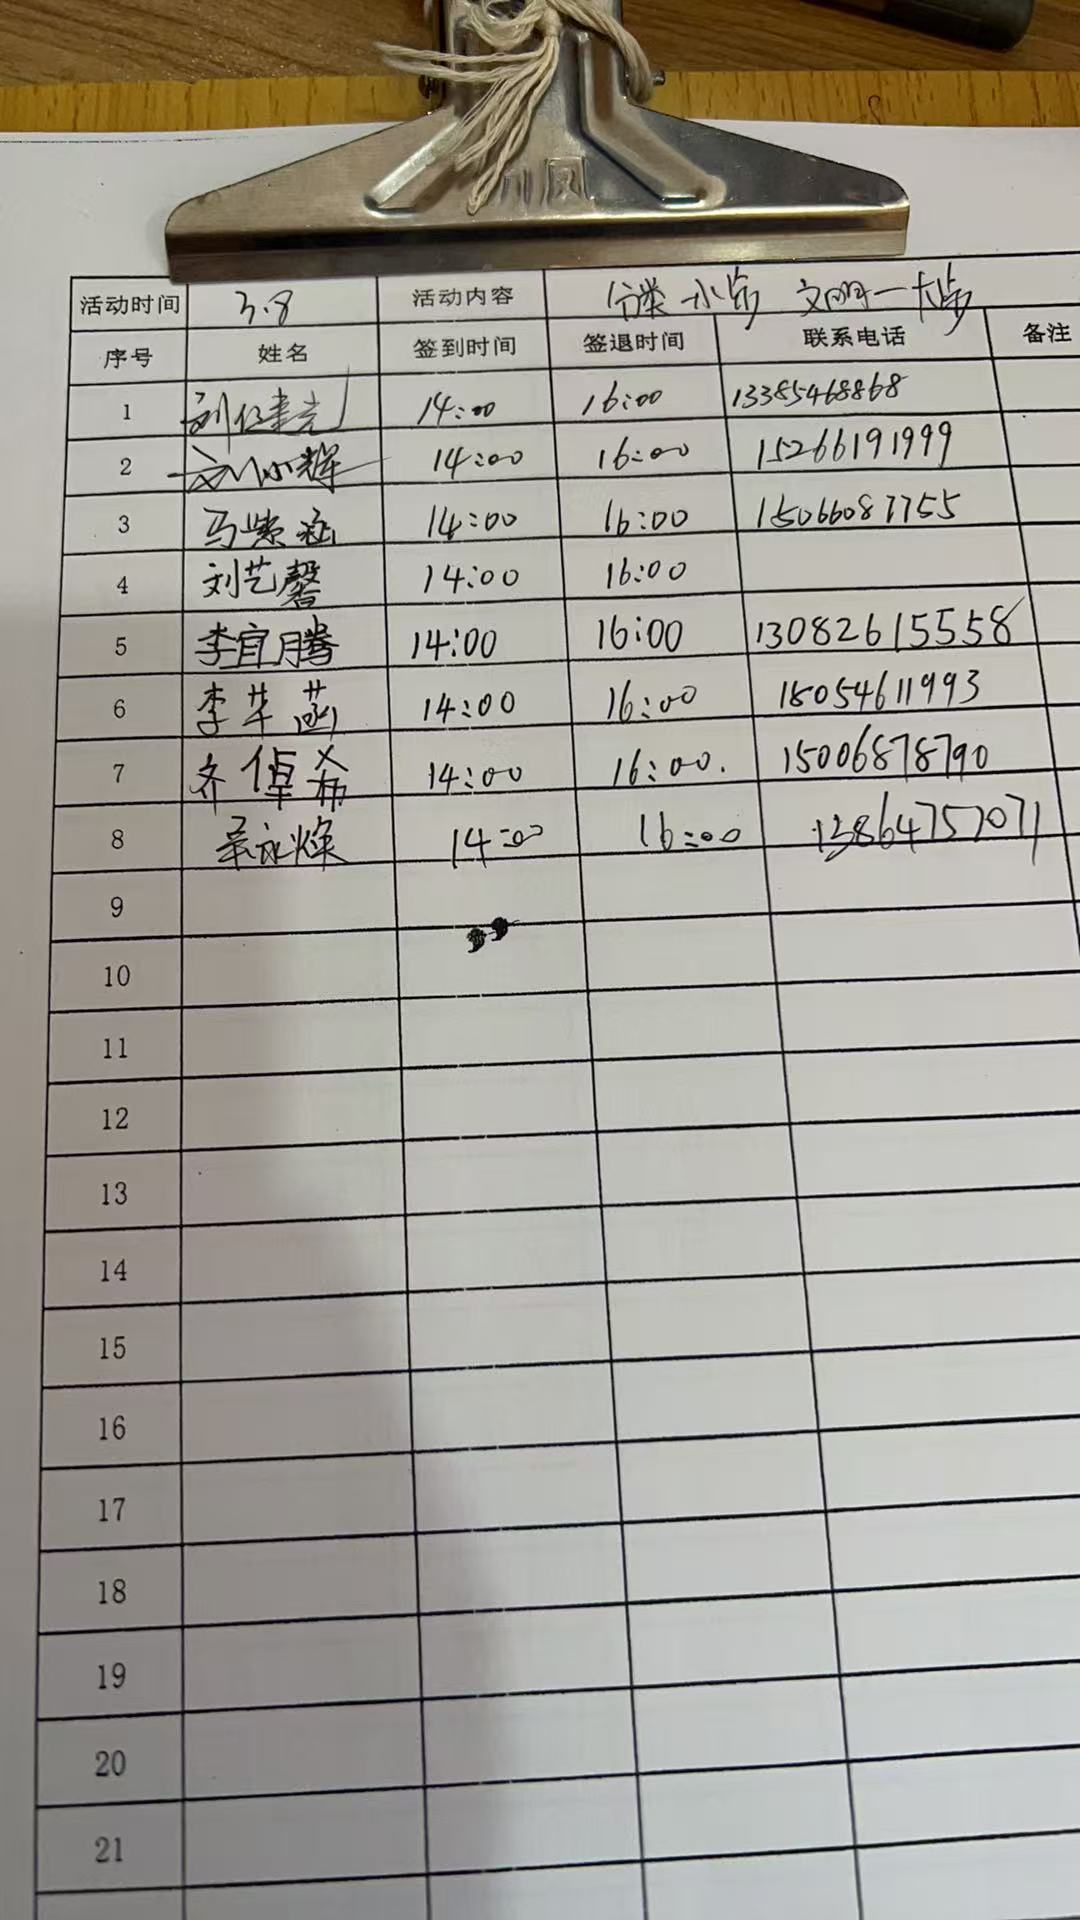 活动时间 3.8 活动内容 分类一小步 文明一大步
序号 姓名 签到时间 签退时间 联系电话 备注
1 14:00 16:00 13385468868
2 刘小辉 14:00 16:00 15266191999
3 马紫涵 14:00 16:00 15066087755
4 刘艺馨 14:00 16:00
5 李宜腾 14:00 16:00 13082615558
6 李芊菡 14:00 16:00 18054611993
7 齐倬希 14:00 16:00. 15006878790
8 14:00 16:00 13864757071
9
10
11
12
13
14
15
16
17
18
19
20
21